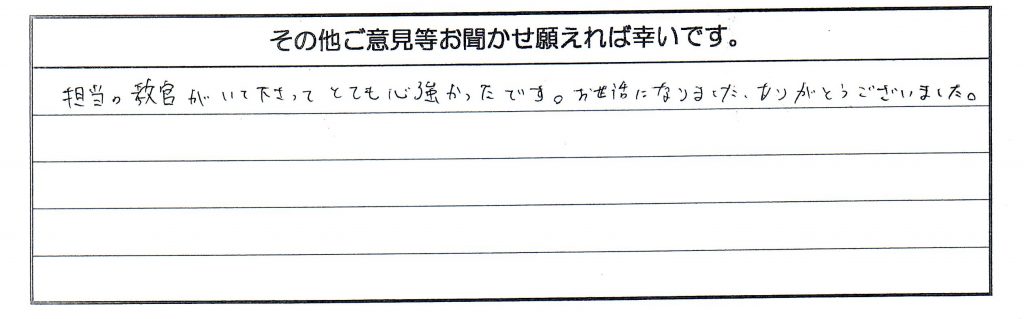 その他ご意見等お聞かせ願えれば幸いです。
担当の教官がいて下さってとても心強かったです。お世話になりました、ありがとうございました。